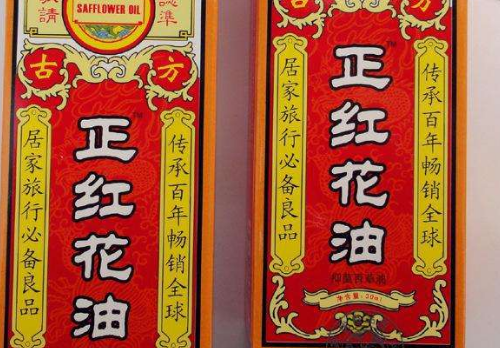 請
準
SAFFLOWER OIL
古方
居家旅行必备良品
正红花油
传承百年畅销全球
居家旅行必备良品
正红花油
传承百年畅销全球
净含量:20ml